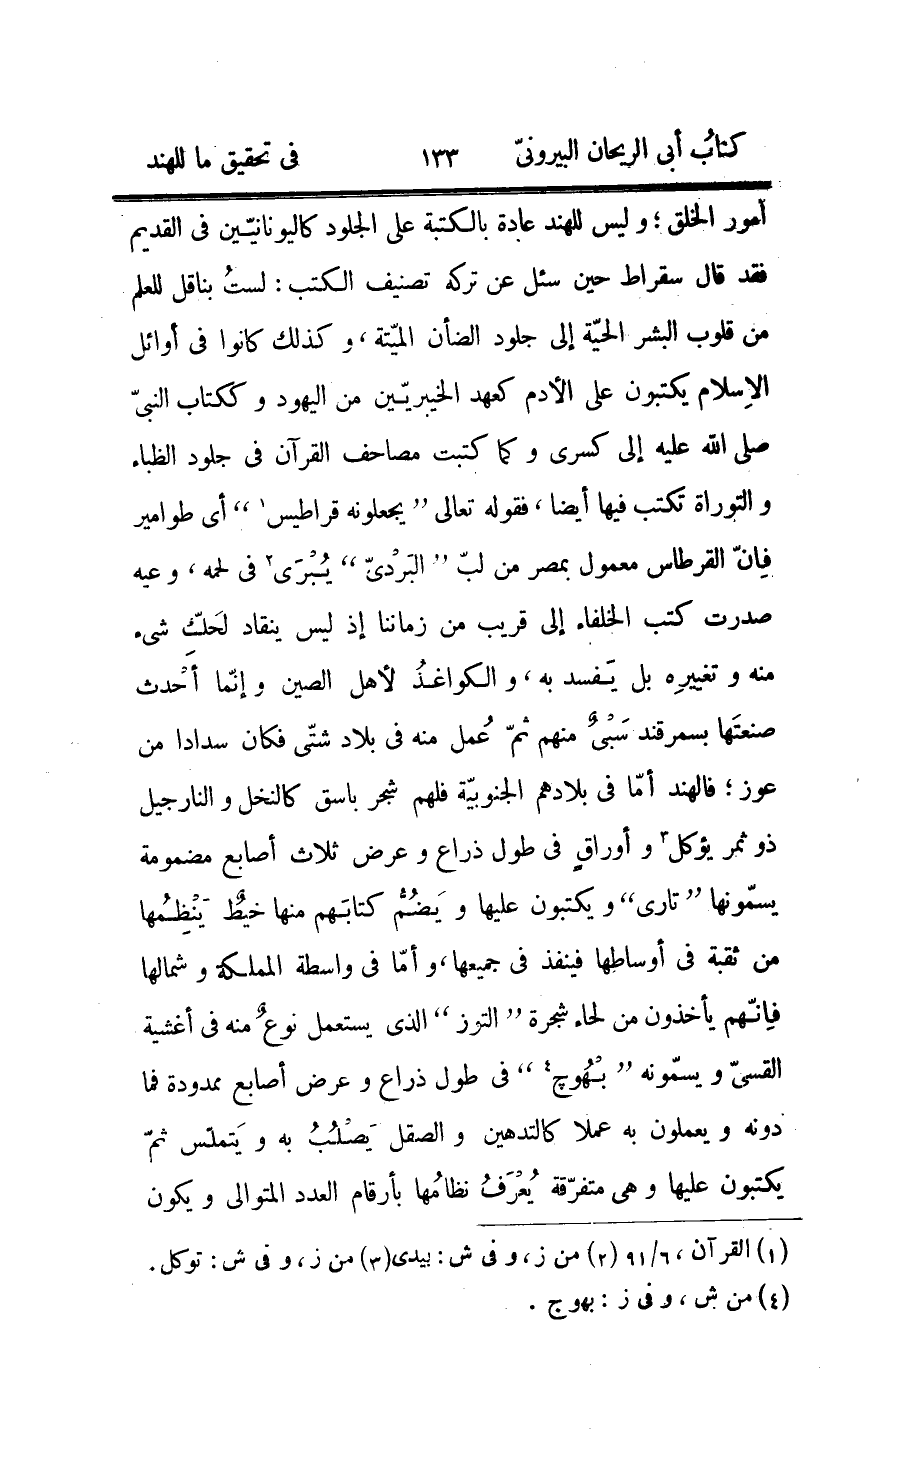 كتابُ أبى الريحان البيرونىّ ١٣٣ فى تحقيق ما للهند
أمور الخلق؛ و ليس للهند عادة بالكتبة على الجلود كاليونانيّين فى القديم
فقد قال سقراط حين سئل عن تركه تصنيف الكتب: لستُ بناقل للعلم
من قلوب البشر الحيّة إلى جلود الضأن الميّتة، و كذلك كانوا فى أوائل
الإسلام يكتبون على الأدم كعهد الخيبريّين من اليهود و ككتاب النبىّ
صلى الله عليه إلى كسرى و كما كتبت مصاحف القرآن فى جلود الظباء
و التوراة تكتب فيها أيضا، فقوله تعالى ”يجعلونه قراطيس١“ أى طوامير
فإنّ القرطاس معمول بمصر من لبّ ”البَرْدىّ“ يُبْرَى٢ فى لحمه، و عيه
صدرت كتب الخلفاء إلى قريب من زماننا إذ ليس ينقاد لحَكِّ شىء
منه و تغييرِه بل يَفسد به، و الكواغذُ لأهل الصين و إنّما أحْدث
صنعتَها بسمرقند سَبْىٌ منهم ثمّ عُمل منه فى بلاد شتّى فكان سدادا من
عوز؛ فالهند أمّا فى بلادهم الجنوبيّة فلهم شجر باسق كالنخل و النارجيل
ذو ثمر يؤكل٣ و أوراقٍ فى طول ذراع و عرض ثلاث أصابع مضمومة
يسمّونها ”تارى“ و يكتبون عليها و يَضُمُّ كتابَهم منها خيطٌ يَنْظِمُها
من ثقبة فى أوساطها فينفذ فى جميعها، و أمّا فى واسطة المملكة و شمالها
فإنّهم يأخذون من لحاء شجرة ”التوز“ الذى يستعمل نوعٌ منه فى أغشية
القسىّ و يسمّونه ”بْهُوچ٤“ فى طول ذراع و عرض أصابع ممدودة فما
دونه و يعملون به عملا كالتدهين و الصقل يَصْلُبُ به و يَتملّس ثمّ
يكتبون عليها و هى متفرّقة يُعْرَفُ نظامُها بأرقام العدد المتوالى و يكون
(١) القرآن، ٩١/٦ (٢) من ز، و فى ش: بيدى (٣) من ز، و فى ش: توكل.
(٤) من ش، و فى ز: بهوج.